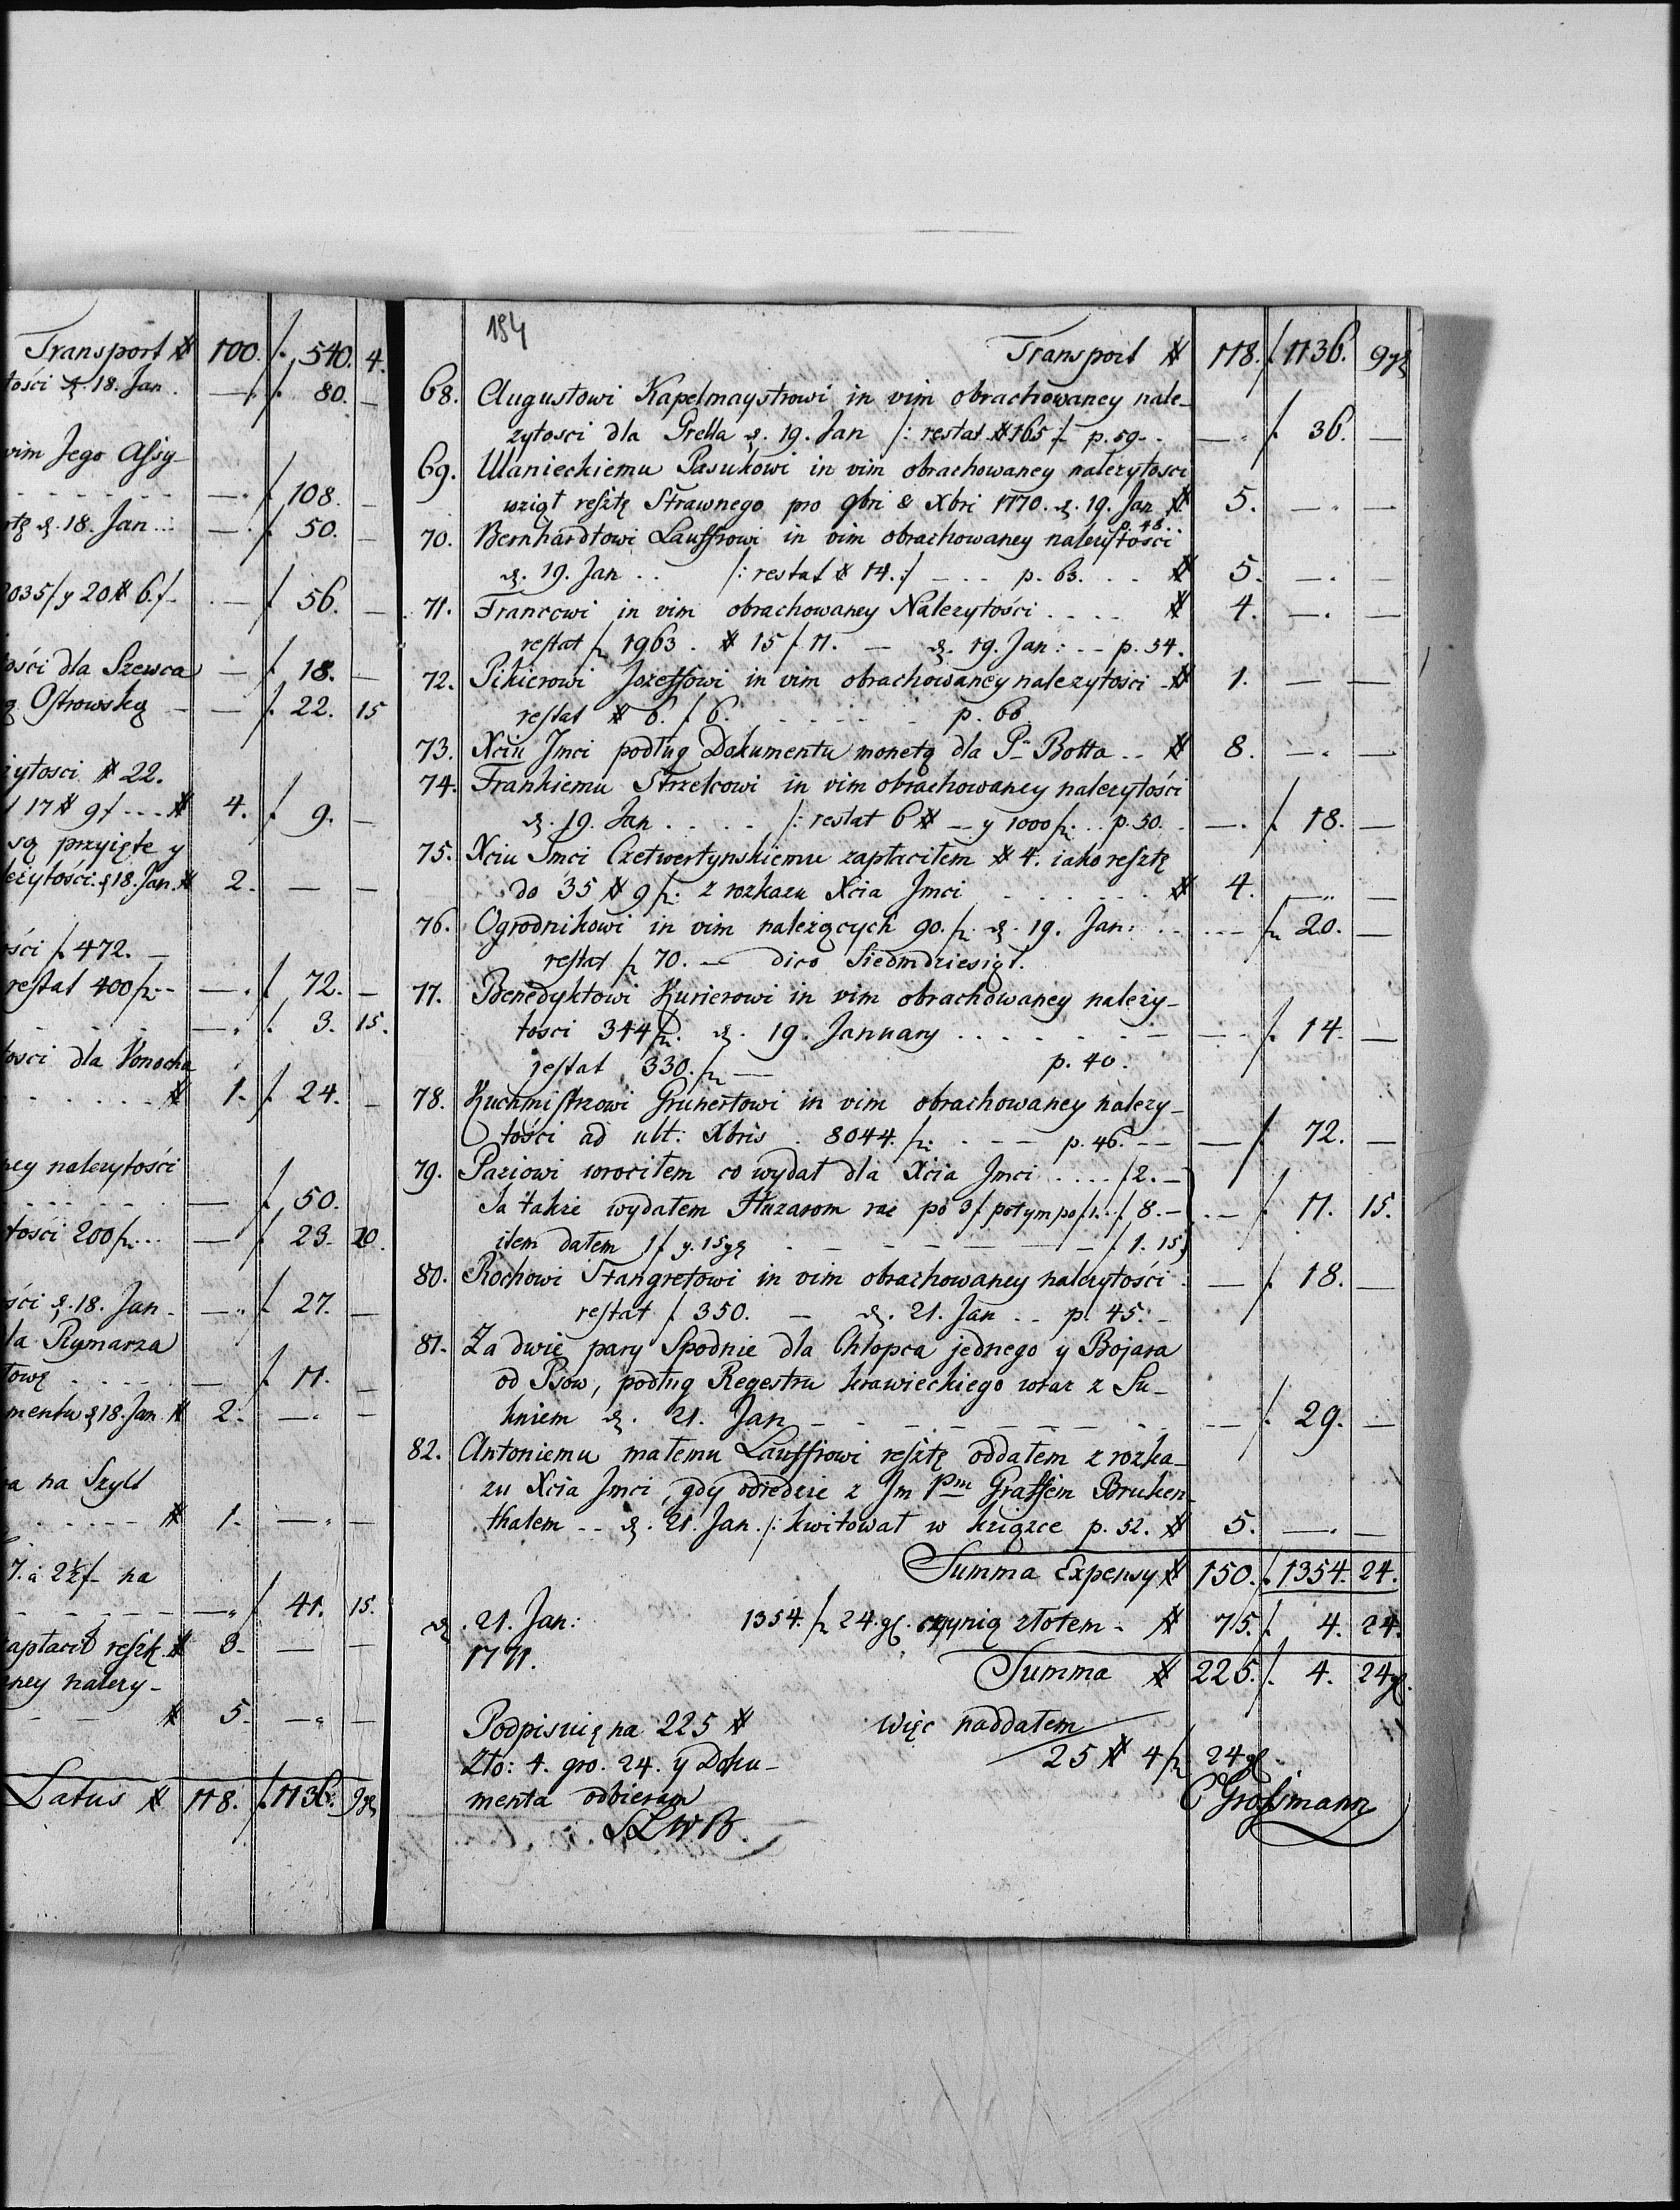 Transport # 100. f. 540. 4.
tości d. 18. Jan. — f. 80. —
vim Jego Assy-
— f 108. —
d. 18. Jan — f. 50. —
2035 f y 20 # 6. f — f 56. —
ości dla Szewca — f 18. —
Ostrowską — f. 22. 15
zytosci # 22.
17 # 9 f # 4. f 9. —
są przyięte y
leżytości. d 18. Jan. # 2. — —
ości f. 472. —
restat 400 f — f 72. —
— f. 3. 15.
tosci dla Konocha
# 1. f. 24. —
ney nalezytości
— f 50.
tości 200 f — f 23. 20.
ści d. 18. Jan — f 27. —
la Rymarza
— f. 11. —
mentu d 18. Jan # 2. — —
na Szylt
# 1. — —
7. a 2½ f na
— f 41. 15.
zapłacił reszt. # 3. — —
ney nalezy-
# 5. — —
Latus # 118. f. 1136. 9 gr
184
Transport # 118. f. 1136. 9 gr
68. Augustowi Kapelmaystrowi in vim obrachowaney nale-
zytosci dla Grella d. 19. Jan /: restat # 165 :/ p. 59. — f. 36. —
69. Ulanieckiemu Pasukowi in vim obrachowaney nalezytosci
wziął resztę Strawnego pro 9bri & Xbri 1770. d. 19. Jan # 5. — —
p. 48.
70. Bernhardtowi Lauffrowi in vim obrachowaney nalezytości
d. 19. Jan . . /: restat # 14. :/ — p. 63. . . # 5. — —
71. Francowi in vim obrachowaney Nalezytości . . . . # 4. — —
restat f 1963. # 15 f 11. — d. 19. Jan: — p. 54.
72. Pikierowi Jozeffowi in vim obrachowaney nalezytości # 1. — —
restat # 6. f 6. p. 66
73. Xciu Jmci podług Dokumentu monetą dla P. Botta . . # 8. — —
74. Frankiemu Strzelcowi in vim obrachowaney nalezytości
d. 19. Jan . . . . /: restat 6 # — y 1000 f. . . p. 30. — f. 18. —
75. Xciu Jmci Czetwertynskiemu zapłaciłem # 4. iako resztę
do 35 # 9 f: z rozkazu Xcia Jmci . . . . . # 4. — —
76. Ogrodnikowi in vim należących 90. f. d. 19. Jan: . . — f 20. —
restat f 70. — dico Siedmdziesiąt.
77. Benedyktowi Kurierowi in vim obrachowaney należy-
tosci 344 f. d. 19. January . . . . . — f. 14. —
restat 330. f — p. 40.
78. Kuchmistrzowi Grunertowi in vim obrachowaney nalezy-
tości ad ult: Xbris . 8044. f: . — p. 46. — — f. 72. —
79. Paziowi wrociłem co wydał dla Xcia Jmci . . . . f 2. —
Ja także wydałem Huzarom raz po 3 f potym po f 1. . f 8. — — f. 11. 15.
item dałem 1 f y. 15 gr — f 1. 15
80. Rochowi Stangretowi in vim obrachowaney nalezytości . — f. 18. —
restat f 350. — d. 21. Jan . . p. 45. —
81. Za dwie pary Spodnie dla Chłopca jednego y Bojara
od Psow, podług Regestru krawieckiego wraz z Su-
kniem d. 21. Jan — f. 29. —
82. Antoniemu małemu Lauffrowi resztę oddałem z rozka-
zu Xcia Jmci, gdy odiedzie z Jm Pm Graffem Bruken-
thalem . . d. 21. Jan. /: kwitował w książce p. 52. # 5. — —
Summa Expensy # 150. f. 1354. 24.
d. 21. Jan: 1354. f 24. gr. czynią złotem - # 75. f. 4. 24.
1771. Summa # 225. f. 4. 24 gr.
Podpisuię na 225 # więc naddałem
Zło: 4. gro. 24. y Doku- 25 # 4 f 24 gr.
menta odbieram C Grossmann